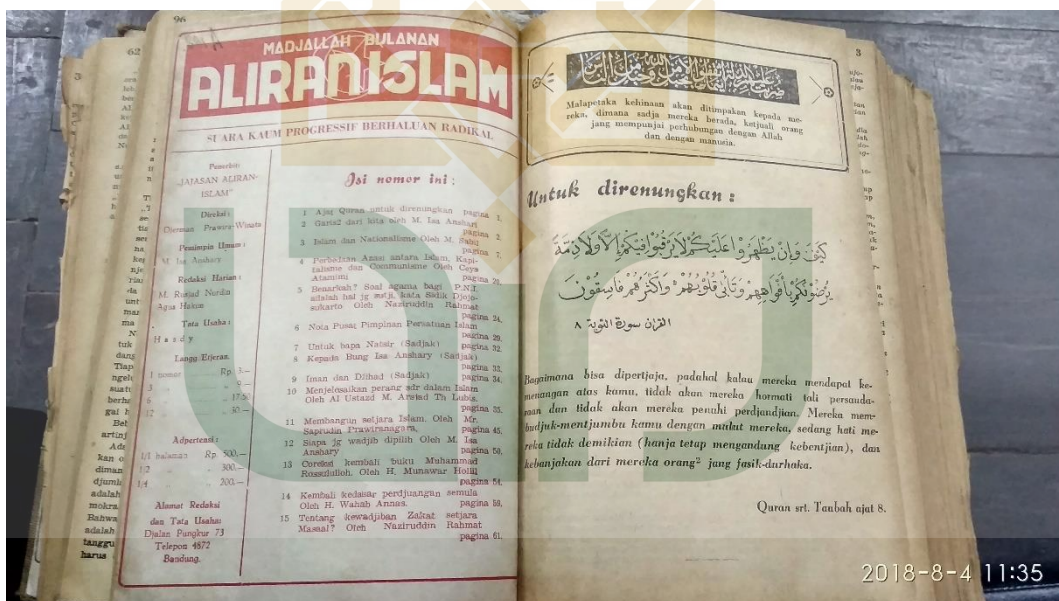 96
MADJALLAH BULANAN
ALIRAN ISLAM
SUARA KAUM PROGRESSIF BERHALUAN RADIKAL
Penerbit:
„JAJASAN ALIRAN-
ISLAM"
Direksi:
Djerman Prawira-Winata
Pemimpin Umum:
M. Isa Anshary
Redaksi Harian:
M. Rusjad Nurdin
Agus Hakim
Tata Usaha:
Hardy
Langg. Etjeran.
1 nomor Rp. 3.—
3 „ „ 9.—
6 „ „ 17.50
12 „ „ 30.—
Adpertensi:
1/1 halaman Rp. 500.—
1/2 „ „ 300.—
1/4 „ „ 200.—
Alamat Redaksi
dan Tata Usaha:
Djalan Pungkur 73
Telepon 4872
Bandung.
Isi nomor ini:
1 Ajat Quran untuk direnungkan pagina 1.
2 Garis2 dari kita oleh M. Isa Anshari
pagina 2.
3 Islam dan Nationalisme Oleh M.
pagina 7.
4 Perbedaan Azasi antara Islam, Kapi-
talisme dan Communisme Oleh Ceya
Atamimi pagina 20.
5 Benarkah? Soal agama bagi P.N.I.
adalah hal jg sutji, kata Sidik Djojo-
sukarto Oleh Naziruddin Rahmat
pagina 24.
6 Nota Pusat Pimpinan Persatuan Islam
pagina 29.
7 Untuk bapa Natsir (Sadjak) pagina 32.
8 Kepada Bung Isa Anshary (Sadjak)
pagina 33.
9 Iman dan Djihad (Sadjak) pagina 34.
10 Menjelesaikan perang sdr dalam Islam
Oleh Al Ustazd M. Arsjad Th Lubis.
pagina 35.
11 Membangun setjara Islam. Oleh Mr.
Saprudin Prawiranagara, pagina 45.
12 Siapa jg wadjib dipilih Oleh M. Isa
Anshary pagina 50.
13 Coreksi kembali buku Muhammad
Rossulullah. Oleh H. Munawar Holil
pagina 54.
14 Kembali kedasar perdjuangan semula
Oleh H. Wahab Annas. pagina 59.
15 Tentang kewadjiban Zakat setjara
Masaal? Oleh Naziruddin Rahmat
pagina 61.
ضربت عليهم الذلة أينما ثقفوا إلا بحبل من الله وحبل من الناس
Malapetaka kehinaan akan ditimpakan kepada me-
reka, dimana sadja mereka berada, ketjuali orang
jang mempunjai perhubungan dengan Allah
dan dengan manusia.
Untuk direnungkan:
كَيْفَ وَإِنْ يَظْهَرُوْا عَلَيْكُمْ لَا يَرْقُبُوْا فِيْكُمْ إِلًّا وَلَا ذِمَّةً
يُرْضُوْنَكُمْ بِأَفْوَاهِهِمْ وَتَأْبَى قُلُوْبُهُمْ وَأَكْثَرُهُمْ فَاسِقُوْنَ
القرآن سورة التوبة ٨
Bagaimana bisa dipertjaja, padahal kalau mereka mendapat ke-
menangan atas kamu, tidak akan mereka hormati tali persauda-
raan dan tidak akan mereka penuhi perdjandjian. Mereka mem-
budjuk-mentjumbu kamu dengan mulut mereka, sedang hati me-
reka tidak demikian (hanja tetap mengandung kebentjian), dan
kebanjakan dari mereka orang² jang fasik-durhaka.
Quran srt. Taubah ajat 8.
2018-8-4 11:35